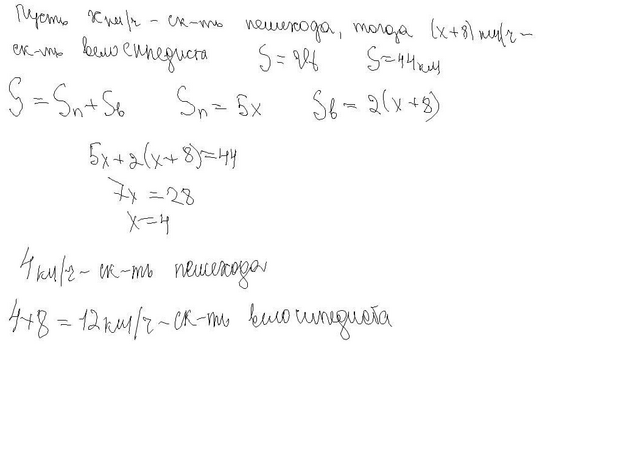 Пусть x км/ч - ск-ть пешехода, тогда (x+8) км/ч -
ск-ть велосипедиста S = Vt S = 44 км
S = Sп + Sв Sп = 5x Sв = 2(x+8)
5x+2(x+8)=44
7x = 28
x=4
4 км/ч - ск-ть пешехода
4+8 = 12 км/ч - ск-ть велосипедиста